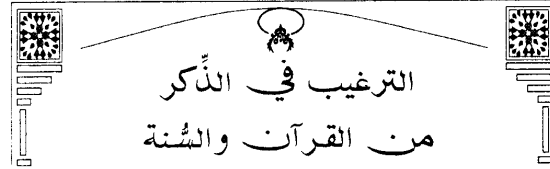 الترغيب في الذِّكر
من القرآن والسُّنة